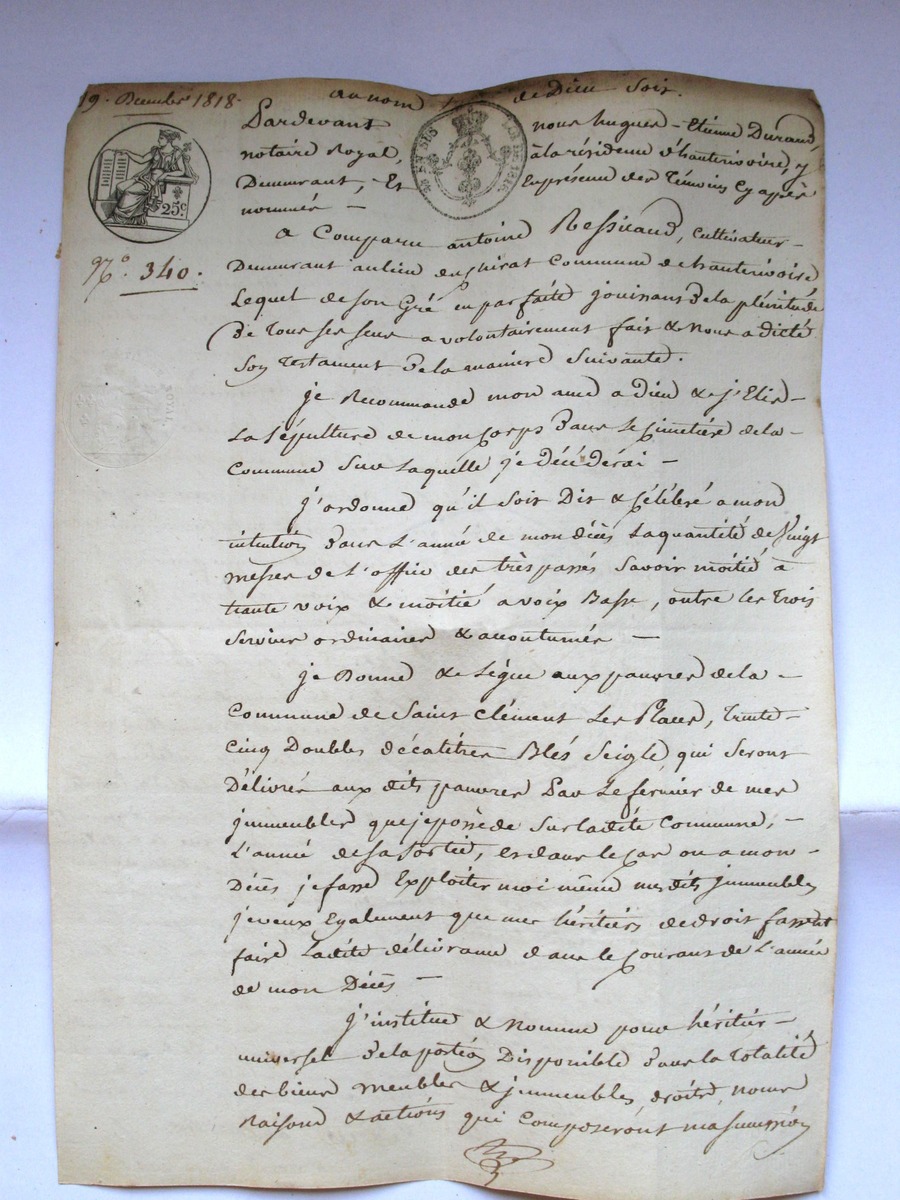 19. Decembre 1818.
au nom de Dieu soit.
Pardevant nous hugues-Etienne Durand,
notaire Royal, à la résidence d'hauterivoire, y
Demeurant, Et En présence des Témoins Cy après
nommés —
25.c
N.o 340.
a Comparu antoine Ressicaud, Cultivateur-
Demeurant au lieu du commune de hauterivoire
Lequel de son Gré en parfaite jouissans de la plénitude
De Tous ses sens a volontairement fait & Nous a dicté
Son Testament de la maniere suivante.
je Recommande mon ame a Dieu & j'Elis-
La Sépulture de mon Corps Dans Le Cimetière de la-
Commune Sur Laquelle je Décéderai —
j'ordonne qu'il Soit Dit & Célébré a mon
intention Dans L'année de mon décès La quantité de Vingt
messes de L'office des trèspassés Savoir moitié à
haute voix & moitié a voix Basse, outre les Trois
Services ordinaires & acoutumés —
je Donne & Lègue aux pauvres de la —
Commune de Saint Clément Les Places, Trente-
Cinq Doubles décalitres Blés Seigle, qui seront
Délivrés aux dits pauvres Par Le fermier de mes
jmmeubles que je possède Sur la dite Commune, —
L'année de sa Sortie, et dans le Cas ou a mon-
Décès je fasse Exploiter moi même mes dits jmmeubles
je veux Egalement que mes héritiers de droit fassent
faire La dite délivrance dans le Courant de L'année
de mon Décès —
j'institue & Nomme pour héritier-
universel de la portion Disponible Dans la Totalité
des biens meubles & jmmeubles, droits, noms
Raisons & actions qui Composeront ma succession